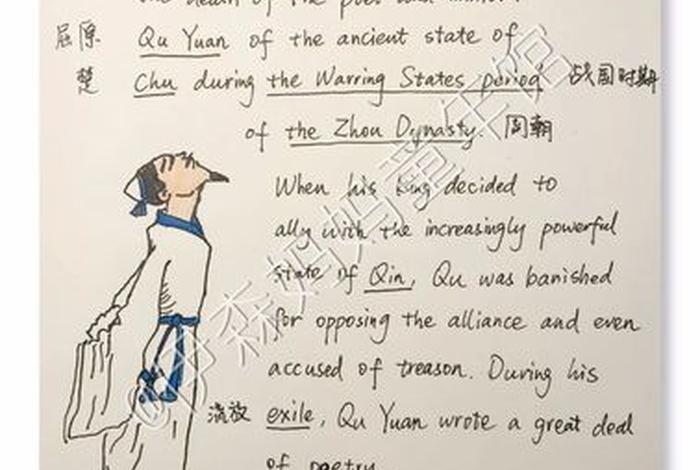 the death of the poet and minister
屈原 Qu Yuan of the ancient state of
楚 Chu during the Warring States period 战国时期
of the Zhou Dynasty. 周朝
When his king decided to
ally with the increasingly powerful
state of Qin, Qu was banished
for opposing the alliance and even
accused of treason. During his
流放 exile, Qu Yuan wrote a great deal
of poetry
@伊森妈妈童年馆